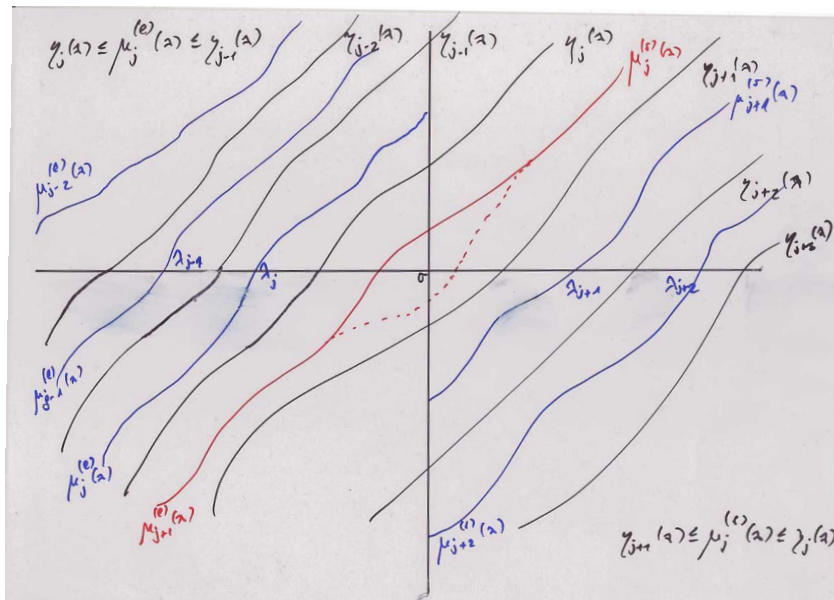 η_j(λ) ≤ μ_j^(e)(λ) ≤ η_{j-1}(λ)
η_{j-2}(λ)
η_{j-1}(λ)
η_j(λ)
μ_j^(s)(λ)
η_{j+1}(λ)
μ_{j+1}^(s)(λ)
μ_{j-2}^(e)(λ)
η_{j+2}(λ)
η_{j+3}(λ)
λ_{j-1}
λ_j
0
λ_{j+1}
λ_{j+2}
μ_{j-1}^(e)(λ)
μ_j^(e)(λ)
μ_{j+1}^(e)(λ)
μ_{j+2}(λ)
η_{j+1}(λ) ≤ μ_j(λ) ≤ η_j(λ)